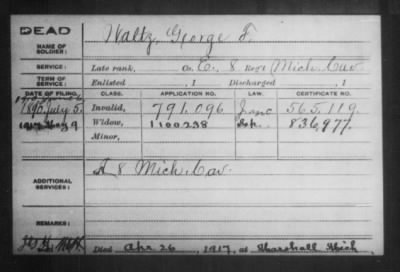 DEAD
NAME OF SOLDIER: Waltz, George F.
SERVICE: Late rank, Co. E, 8 Reg't Mich. Cav
TERM OF SERVICE: Enlisted , 1 Discharged , 1
DATE OF FILING. CLASS. APPLICATION NO. LAW. CERTIFICATE NO.
July 5. Invalid, 791.096 565.119.
1917 May 9 Widow, 1100238 836,977.
Minor,
ADDITIONAL SERVICES: A 8 Mich. Cav.
REMARKS:
Died Apr 26, 1917, at Marshall Mich